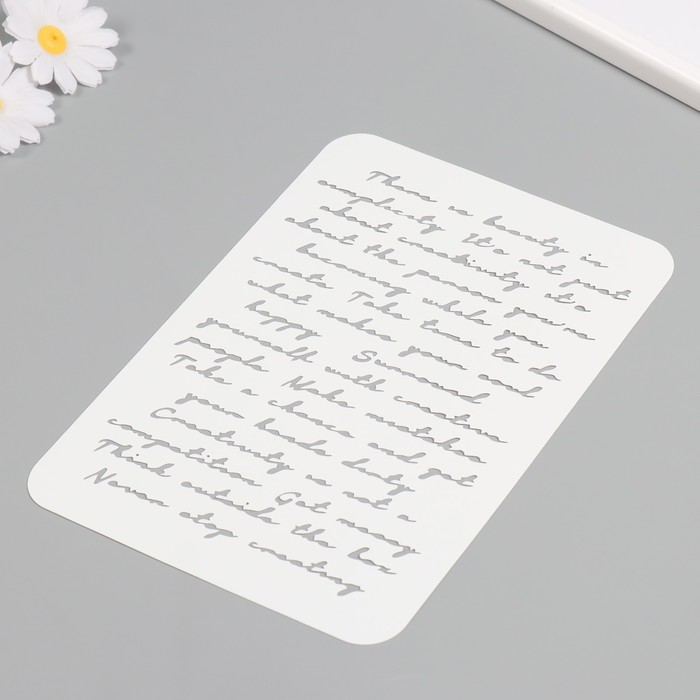 There is beauty in
simplicity It's not just
about creativity it's
about the person you're
becoming while you
create Take time to do
what makes your soul
happy Surround
yourself with creative
people Make mistakes
Take a chance and get
your hands dirty
Creativity is not a
competition Get messy
Think outside the box
Never stop creating